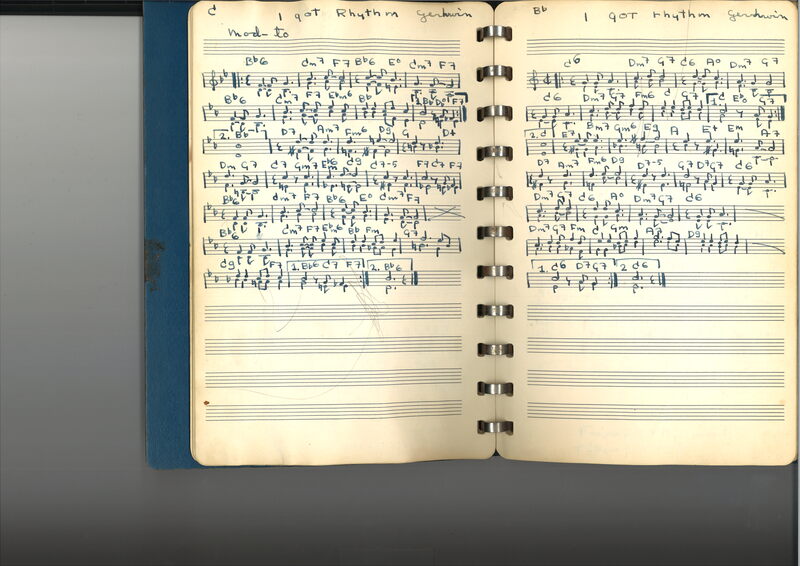 C I got Rhythm Gershwin
mod- to
Bb6 Cm7 F7 Bb6 E° Cm7 F7
Bb6 Cm7 F7 Ebm6 Bb 1. Bb D° F7
2. Bb D7 Am7 Fm6 D9 G D+
Dm G7 C7 Gm7 C9 C7-5 F7 C7 F7
Bb6 Cm7 F7 Bb6 E° Cm7 F7
Bb6 Cm7 F7 Bb Fm G7
C9 F7 1. Bb6 C7 F7 2. Bb6
Bb I got rhythm Gershwin
C6 Dm7 G7 C6 A° Dm7 G7
C6 Dm7 G7 Fm6 C 1. C E° G7
2. C E7 Bm7 Gm6 E9 A E+ Em A7
D7 Am7 Fm6 D9 D7-5 G7 D7 G7 C6
Dm7 G7 C6 A° Dm7 G7 C6
Dm7 G7 Fm C Gm A7 D9
1. C6 D7 G7 2 C6